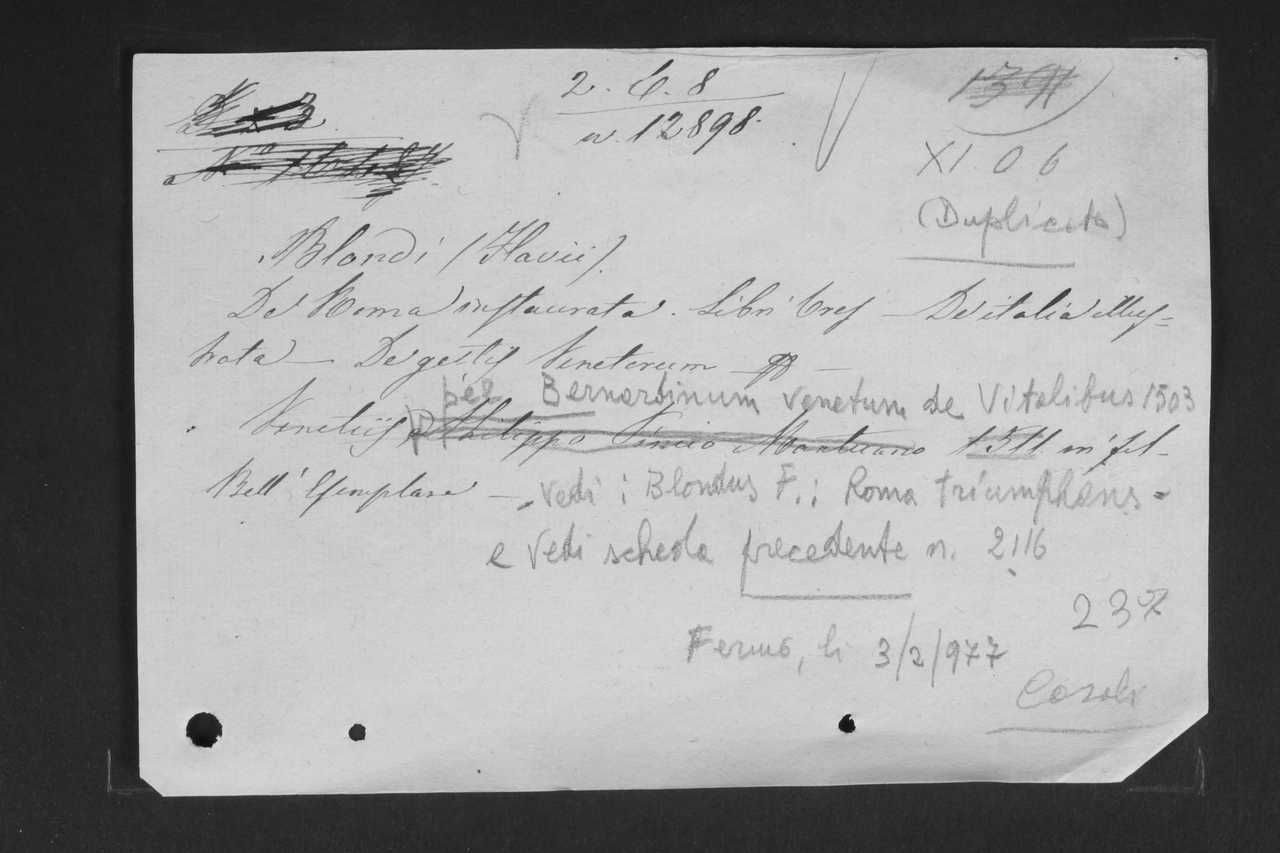 2. C. 8
n. 12898.
XI. 0 6
(Duplicato)
Blondi (Flavii).
De Roma instaurata. Libri tres – De italia illus=
trata – De gestis Venetorum –
per Bernardinum Venetum de Vitalibus 1503
Venetiis Philippo Pincio Mantuano 1511 in fol–
Bell' Esemplare – Vedi: Blondus F.: Roma triumphans –
e vedi scheda precedente n. 2116
Fermo, li 3/2/977